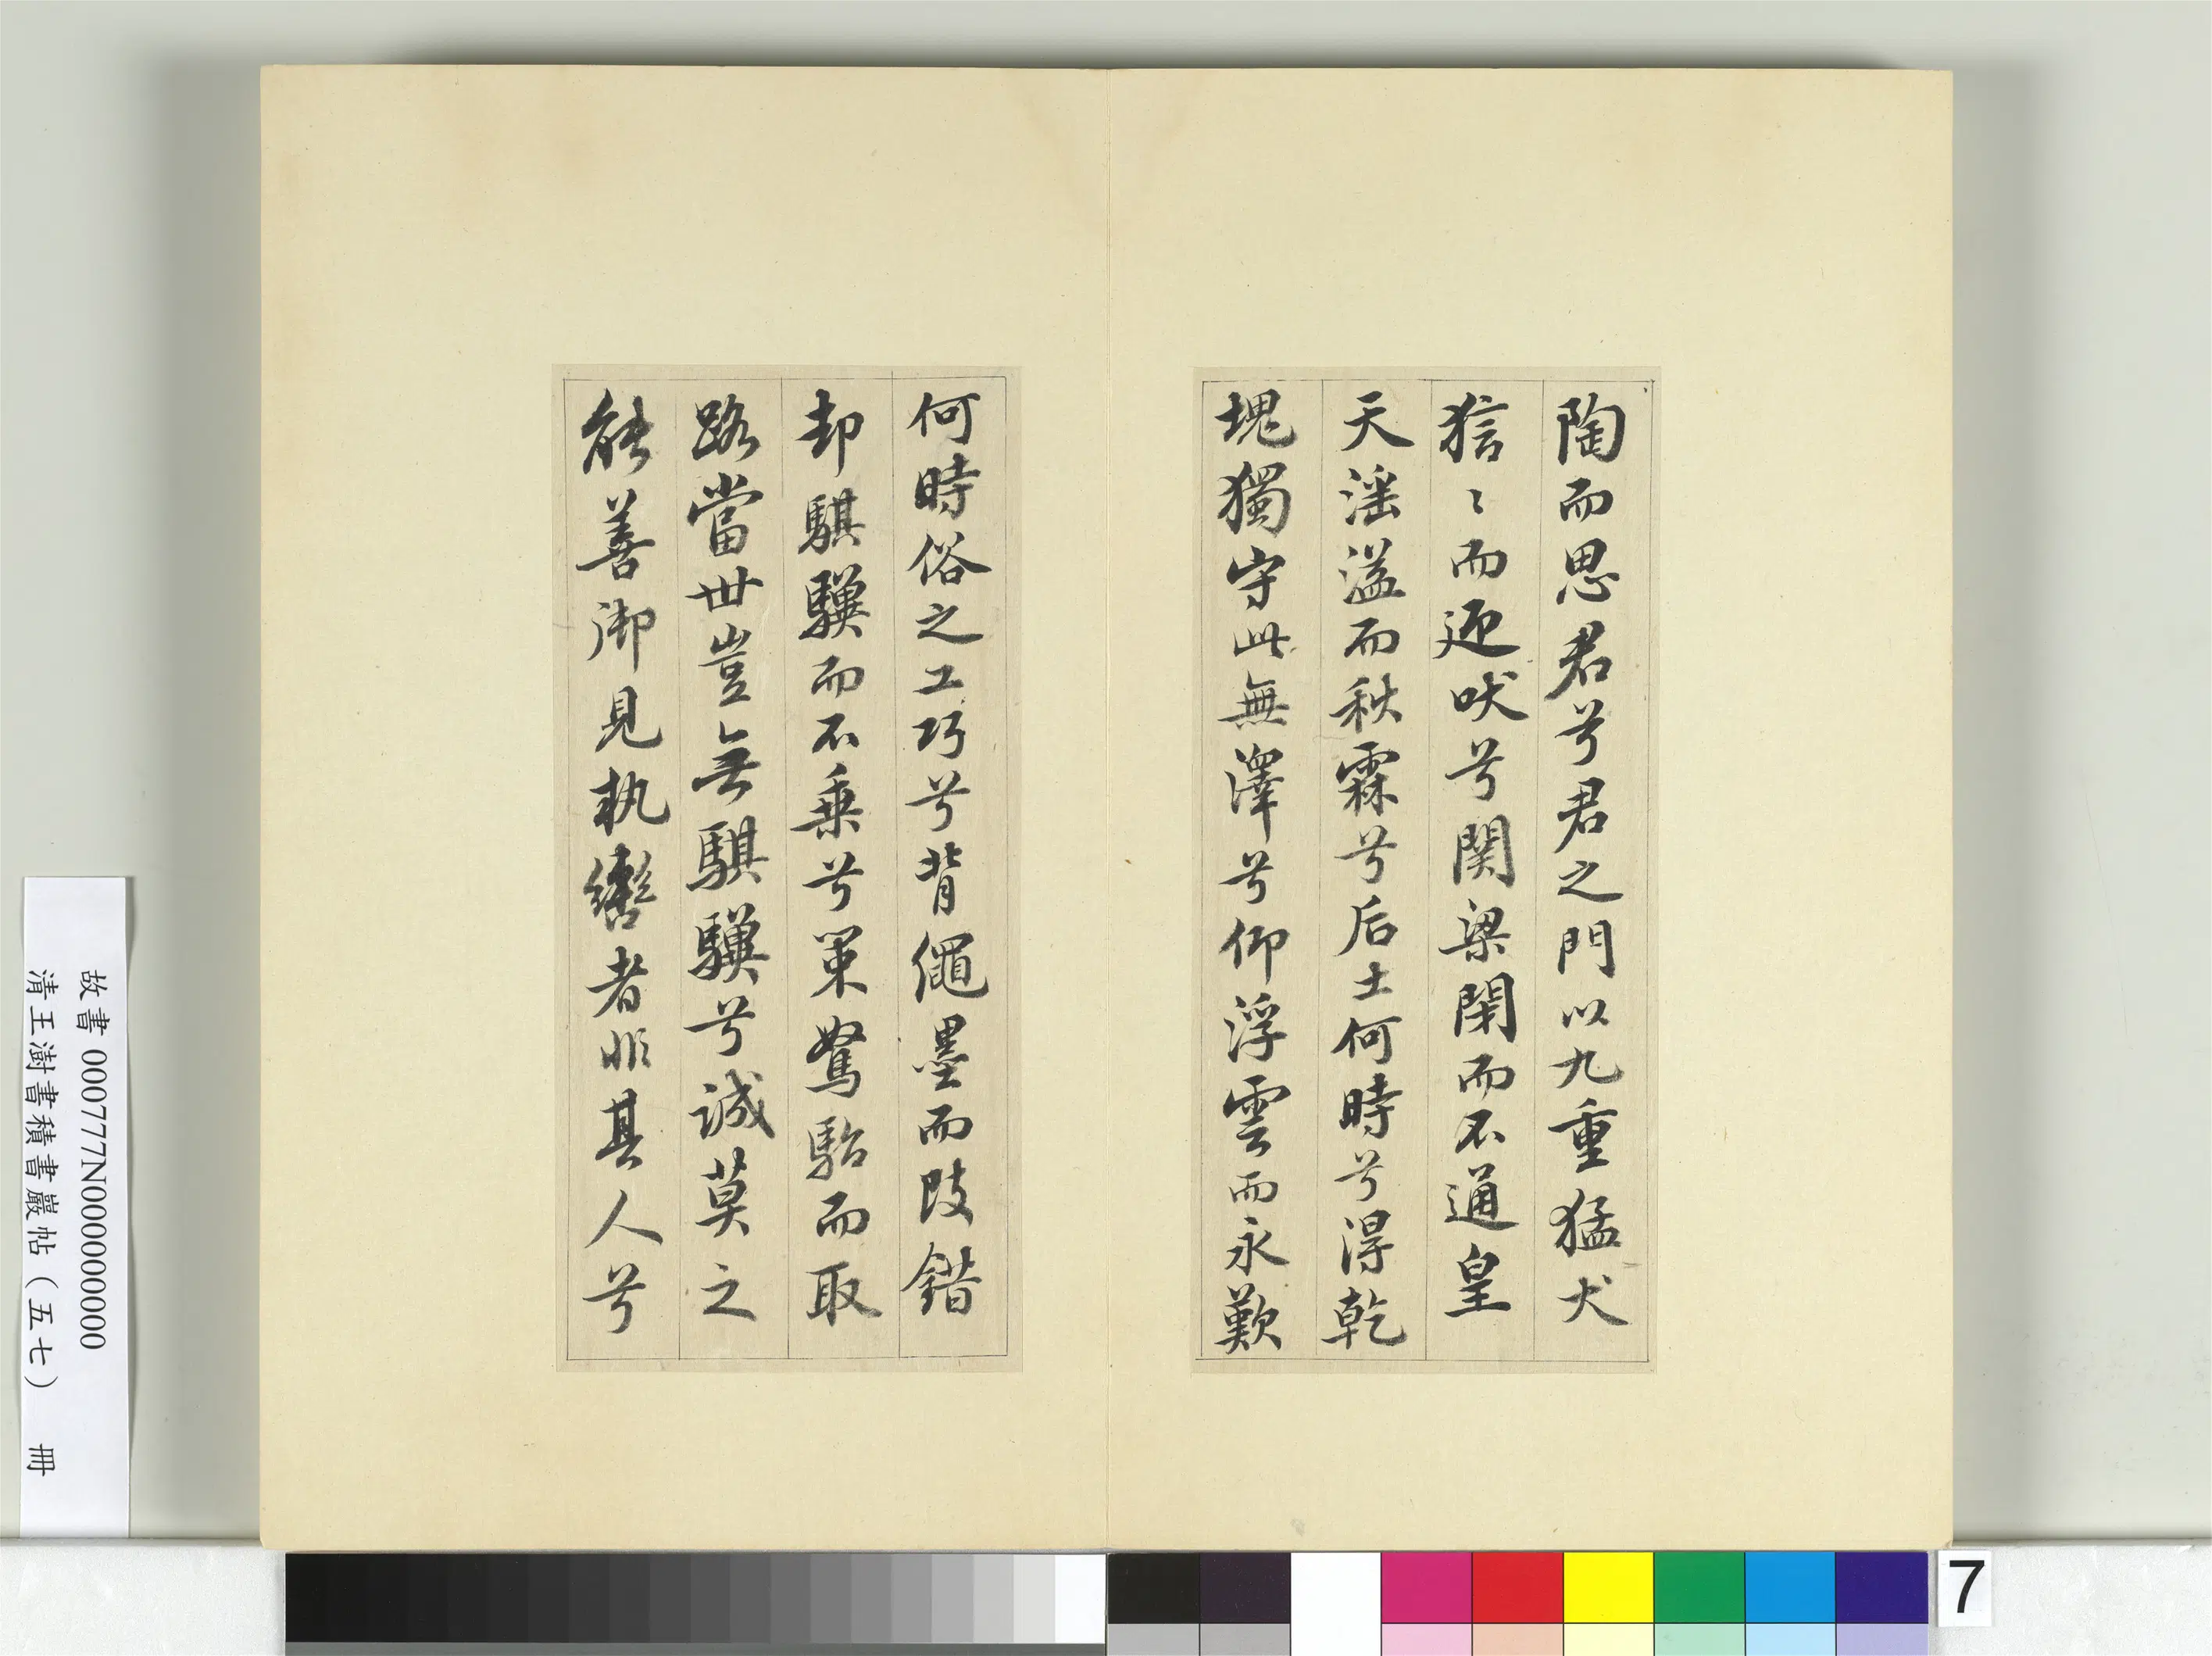 陶而思君兮君之門以九重猛犬
狺〻而迎吠兮関梁閉而不通皇
天滛溢而秋霖兮后土何時兮得乾
塊獨守此無澤兮仰浮雲而永歎
何時俗之工巧兮背繩墨而改錯
却騏驥而不乗兮策駑駘而取
路當世豈無騏驥兮誠莫之
能善御見執轡者非其人兮
故書 000777N000000000
清王澍書積書巖帖（五七） 冊
7